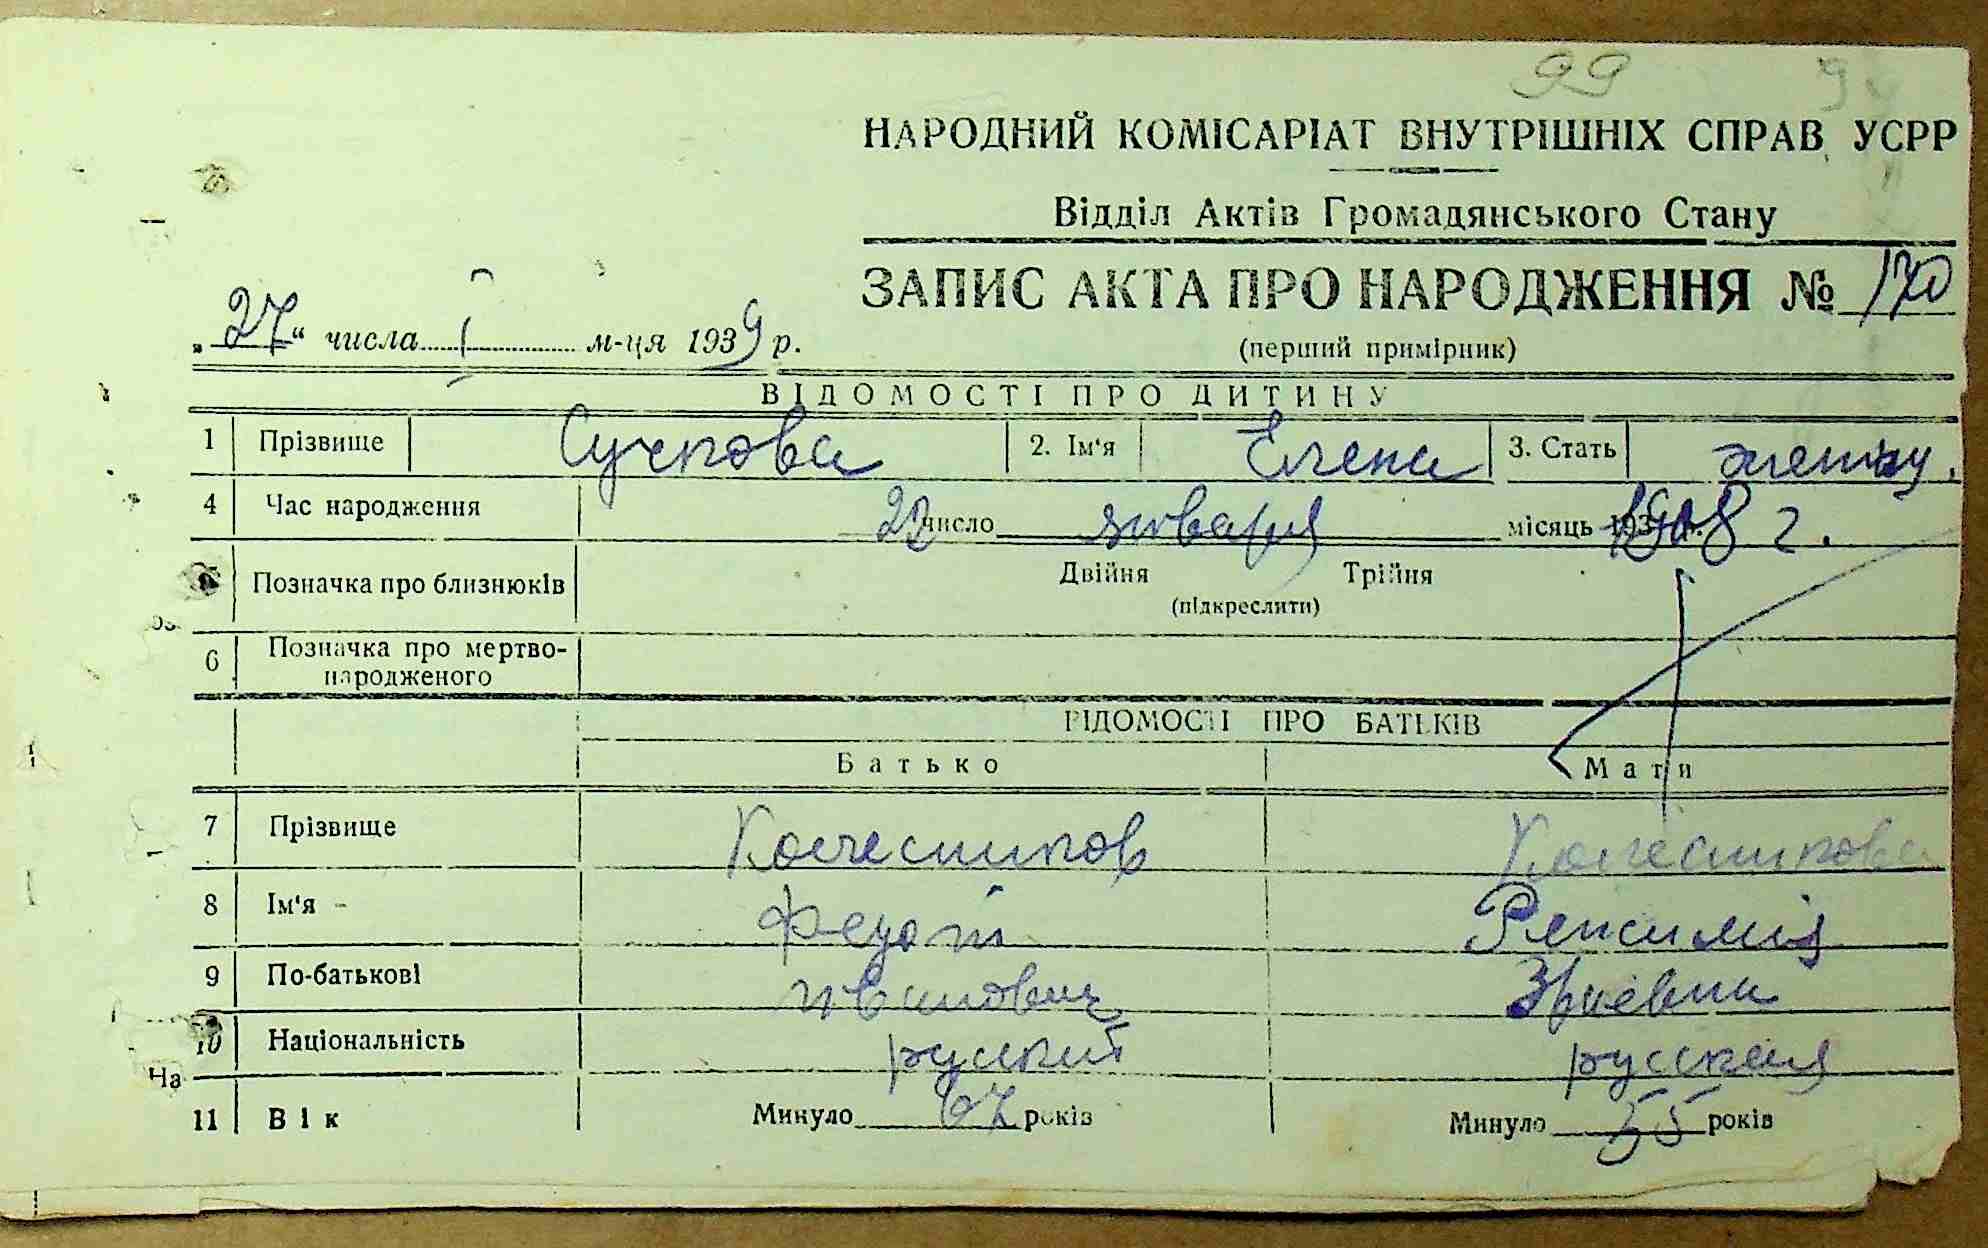 99
НАРОДНИЙ КОМІСАРІАТ ВНУТРІШНІХ СПРАВ УСРР
Відділ Актів Громадянського Стану
ЗАПИС АКТА ПРО НАРОДЖЕННЯ № 170
„27“ числа I м-ця 1939 р.
(перший примірник)
ВІДОМОСТІ ПРО ДИТИНУ
1 Прізвище 2. Ім'я Елена 3. Стать
4 Час народження 22 число января місяць 1908 г.
Позначка про близнюків Двійня Трійня
(підкреслити)
6 Позначка про мертво-
народженого
ВІДОМОСТІ ПРО БАТЬКІВ
Батько Мати
7 Прізвище Колесников Колесникова
8 Ім'я Федот Репсимия
9 По-батькові Иванович
10 Національність русский русская
На
11 Вік Минуло 67 років Минуло 55 років